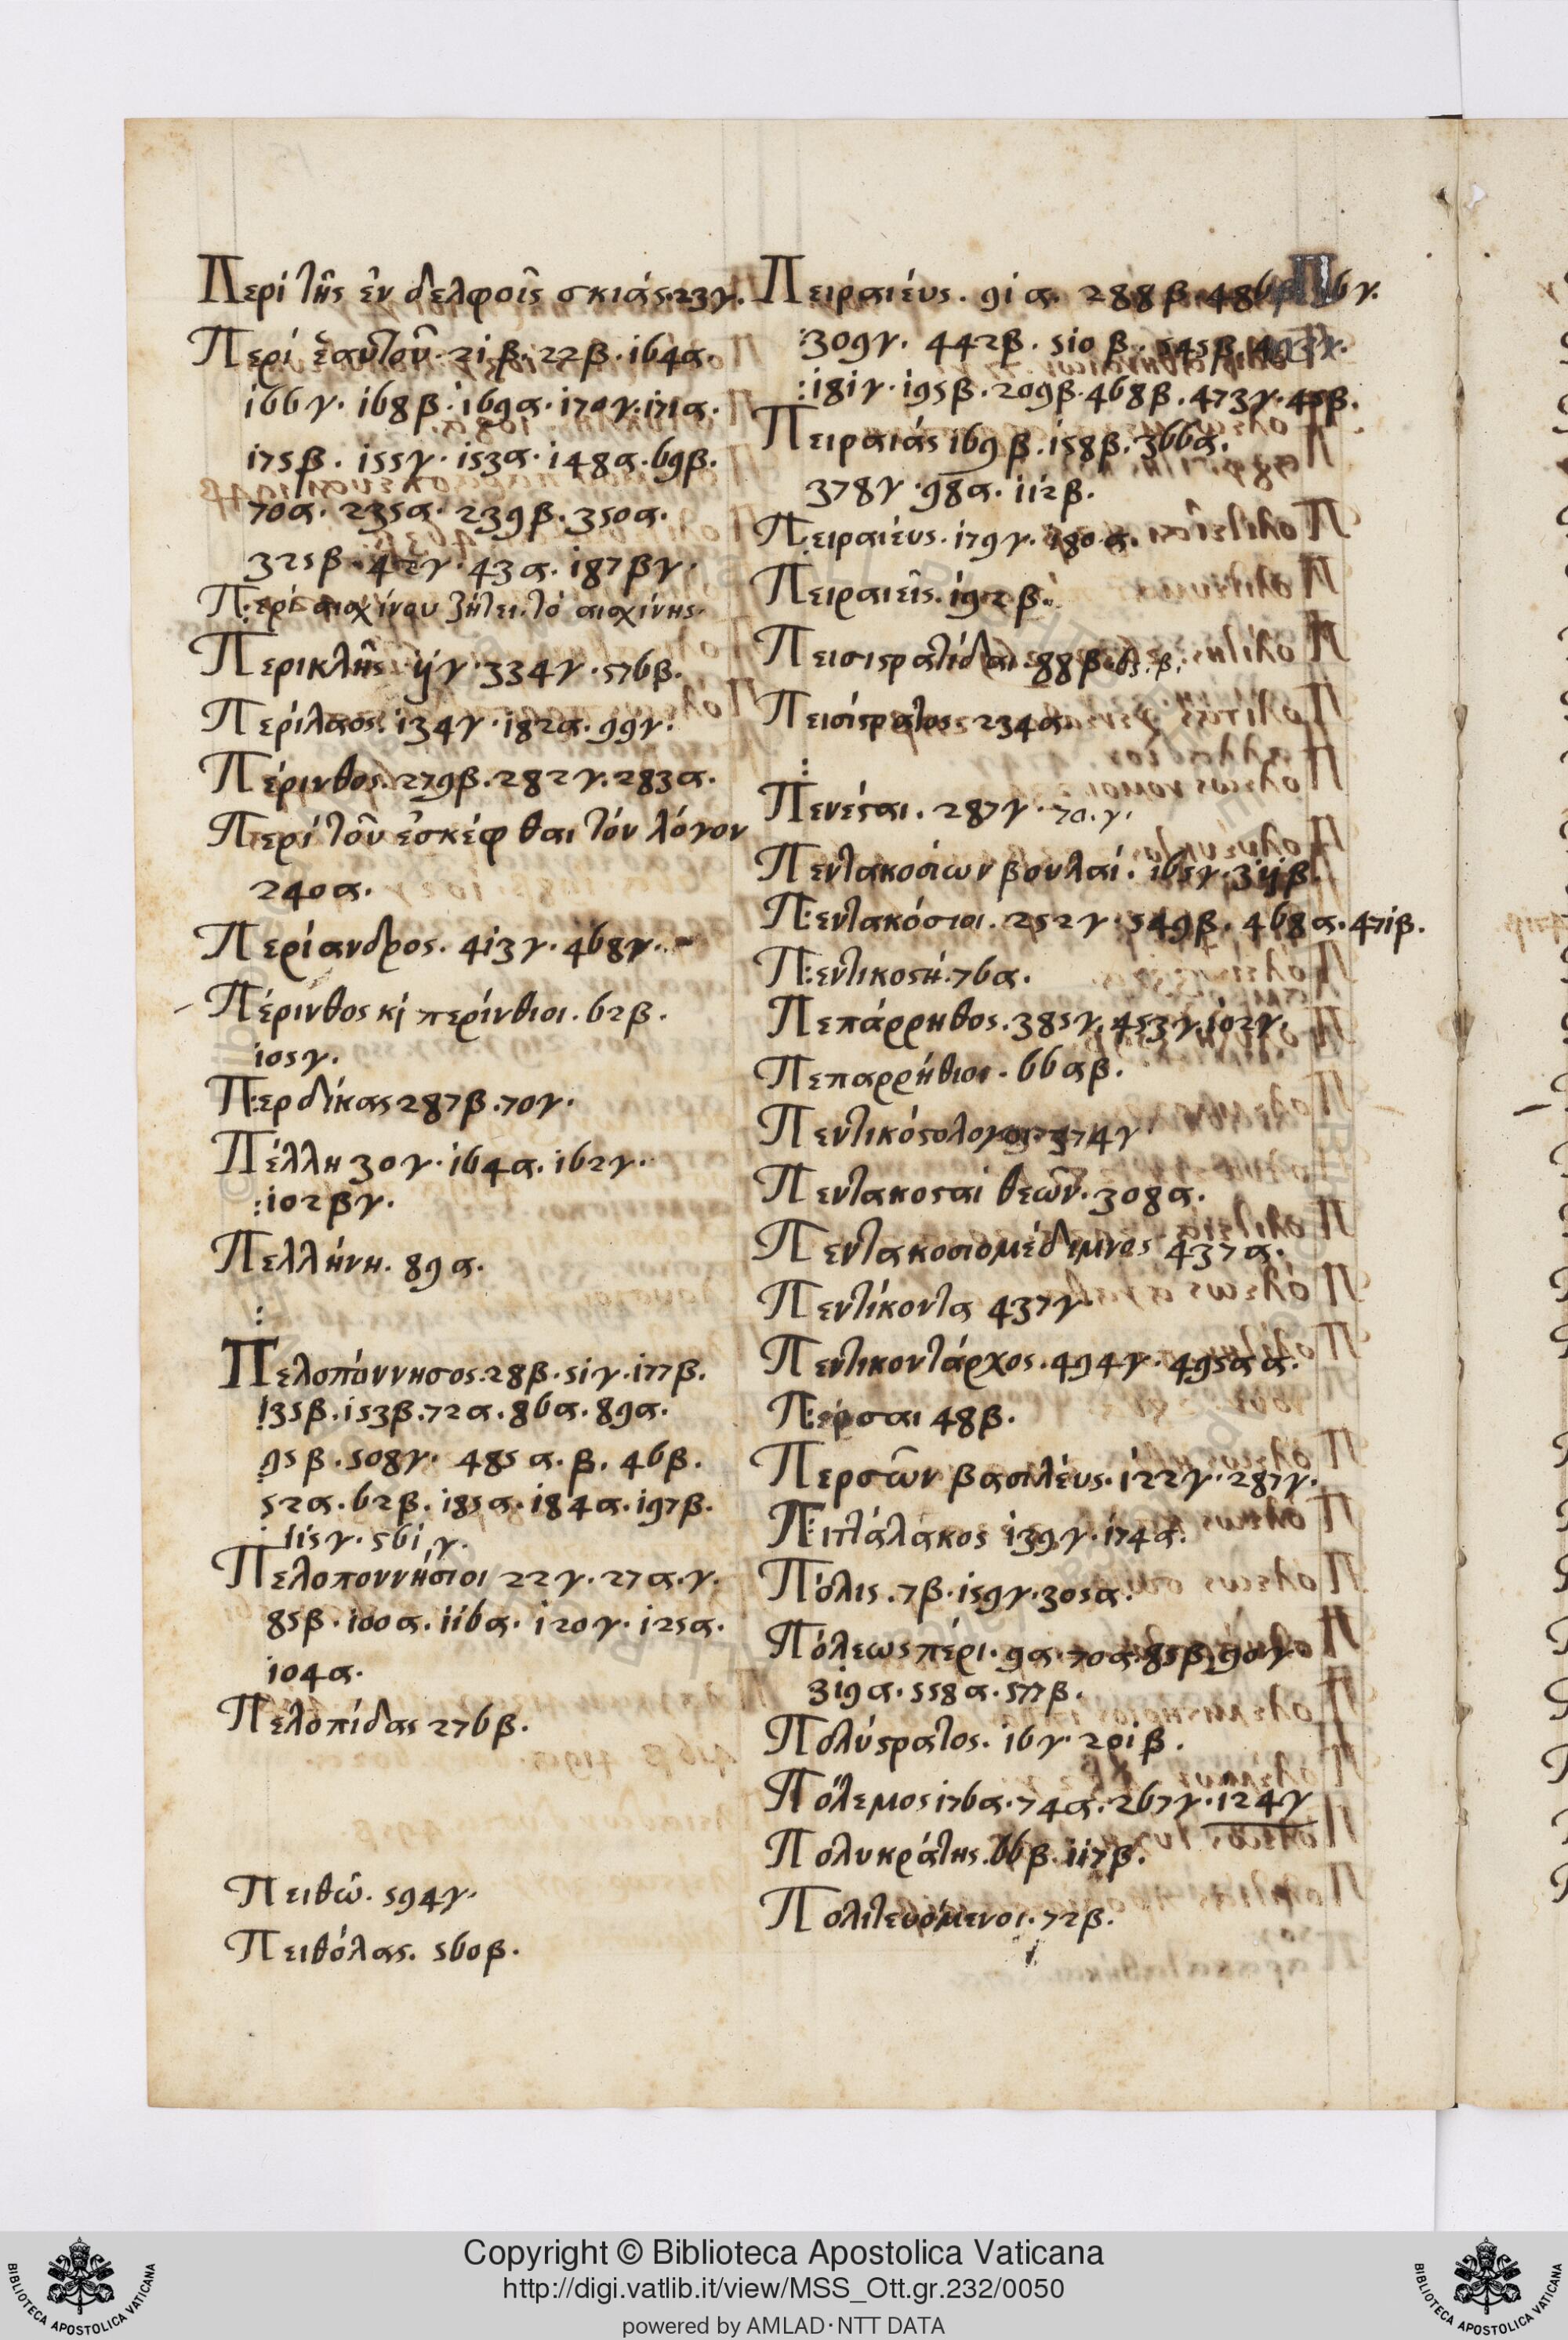 Περί τῆς ἐν δελφοῖς σκιάς. 23γ.
Περί ἑαυτοῦ. 21β. 22β. 164α.
166γ. 168β. 169α. 170γ. 171α.
175β. 155γ. 153α. 148α. 69β.
70α. 235α. 239β. 350α.
325β. 42γ. 43α. 187βγ.
Περί αἰσχίνου ζήτει τό αἰσχίνης.
Περικλῆς 334γ. 576β.
Περίλαος. 134γ. 182α. 99γ.
Πέρινθος. 279β. 282γ. 283α.
Περί τοῦ ἐσκέφθαι τόν λόγον
240α.
Περίανδρος. 413γ. 468γ.
Πέρινθος κ περίνθιοι. 62β.
105γ.
Περδίκας 287β. 70γ.
Πέλλη 30γ. 164α. 162γ.
102βγ.
Πελλήνη. 89α.
Πελοπόννησος. 28β. 51γ. 177β.
135β. 153β. 72α. 86α. 89α.
95β. 508γ. 485α. β. 46β.
52α. 62β. 185α. 184α. 197β.
115γ. 561γ.
Πελοποννήσιοι 22γ. 27α. γ.
85β. 100α. 116α. 120γ. 125α.
104α.
Πελοπίδας 276β.
Πειθώ. 594γ.
Πειθόλας. 560β.
Πειραιέυς. 91α. 288β.
309γ. 442β. 510β. 545β.
181γ. 195β. 209β. 468β. 473γ. 45β.
Πειραιάς 169β. 158β. 366α.
378γ. 98α. 112β.
Πειραιέυς. 179γ. 180α.
Πειραιεῖς. 192β.
Πεισιϛρατίδαι. 88β. 65.β.
Πεισίϛρατος 234α.
Πενέϛαι. 287γ. 70.γ.
Πεντακοσίων βουλαί. 165γ. 311β.
Πεντακόσιοι. 252γ. 549β. 468α. 471β.
Πεντικοϛή. 76α.
Πεπάρρηθος. 385γ. 453γ. 102γ.
Πεπαρρήθιοι. 66αβ.
Πεντικόϛολογος 374γ
Πεντακοϛαί θεῶν. 308α.
Πεντακοσιομέδιμνος 437α.
Πεντίκοντα 437γ.
Πεντικοντάρχος. 494γ. 495αα.
Πέρσαι 48β.
Περσῶν βασιλέυς. 122γ. 287γ.
Πιττάλακος 139γ. 174α.
Πόλις. 7β. 159γ. 305α.
Πόλεως πέρι. 9α. 70α. 85β. 90γ
319α. 558α. 577β.
Πολύϛρατος. 16γ. 201β.
Πόλεμος 176α. 74α. 267γ. 124γ
Πολυκράτης. 66β. 117β.
Πολιτευόμενοι. 72β.
Copyright © Biblioteca Apostolica Vaticana
http://digi.vatlib.it/view/MSS_Ott.gr.232/0050
powered by AMLAD·NTT DATA
BIBLIOTECA APOSTOLICA VATICANA
BIBLIOTECA APOSTOLICA VATICANA